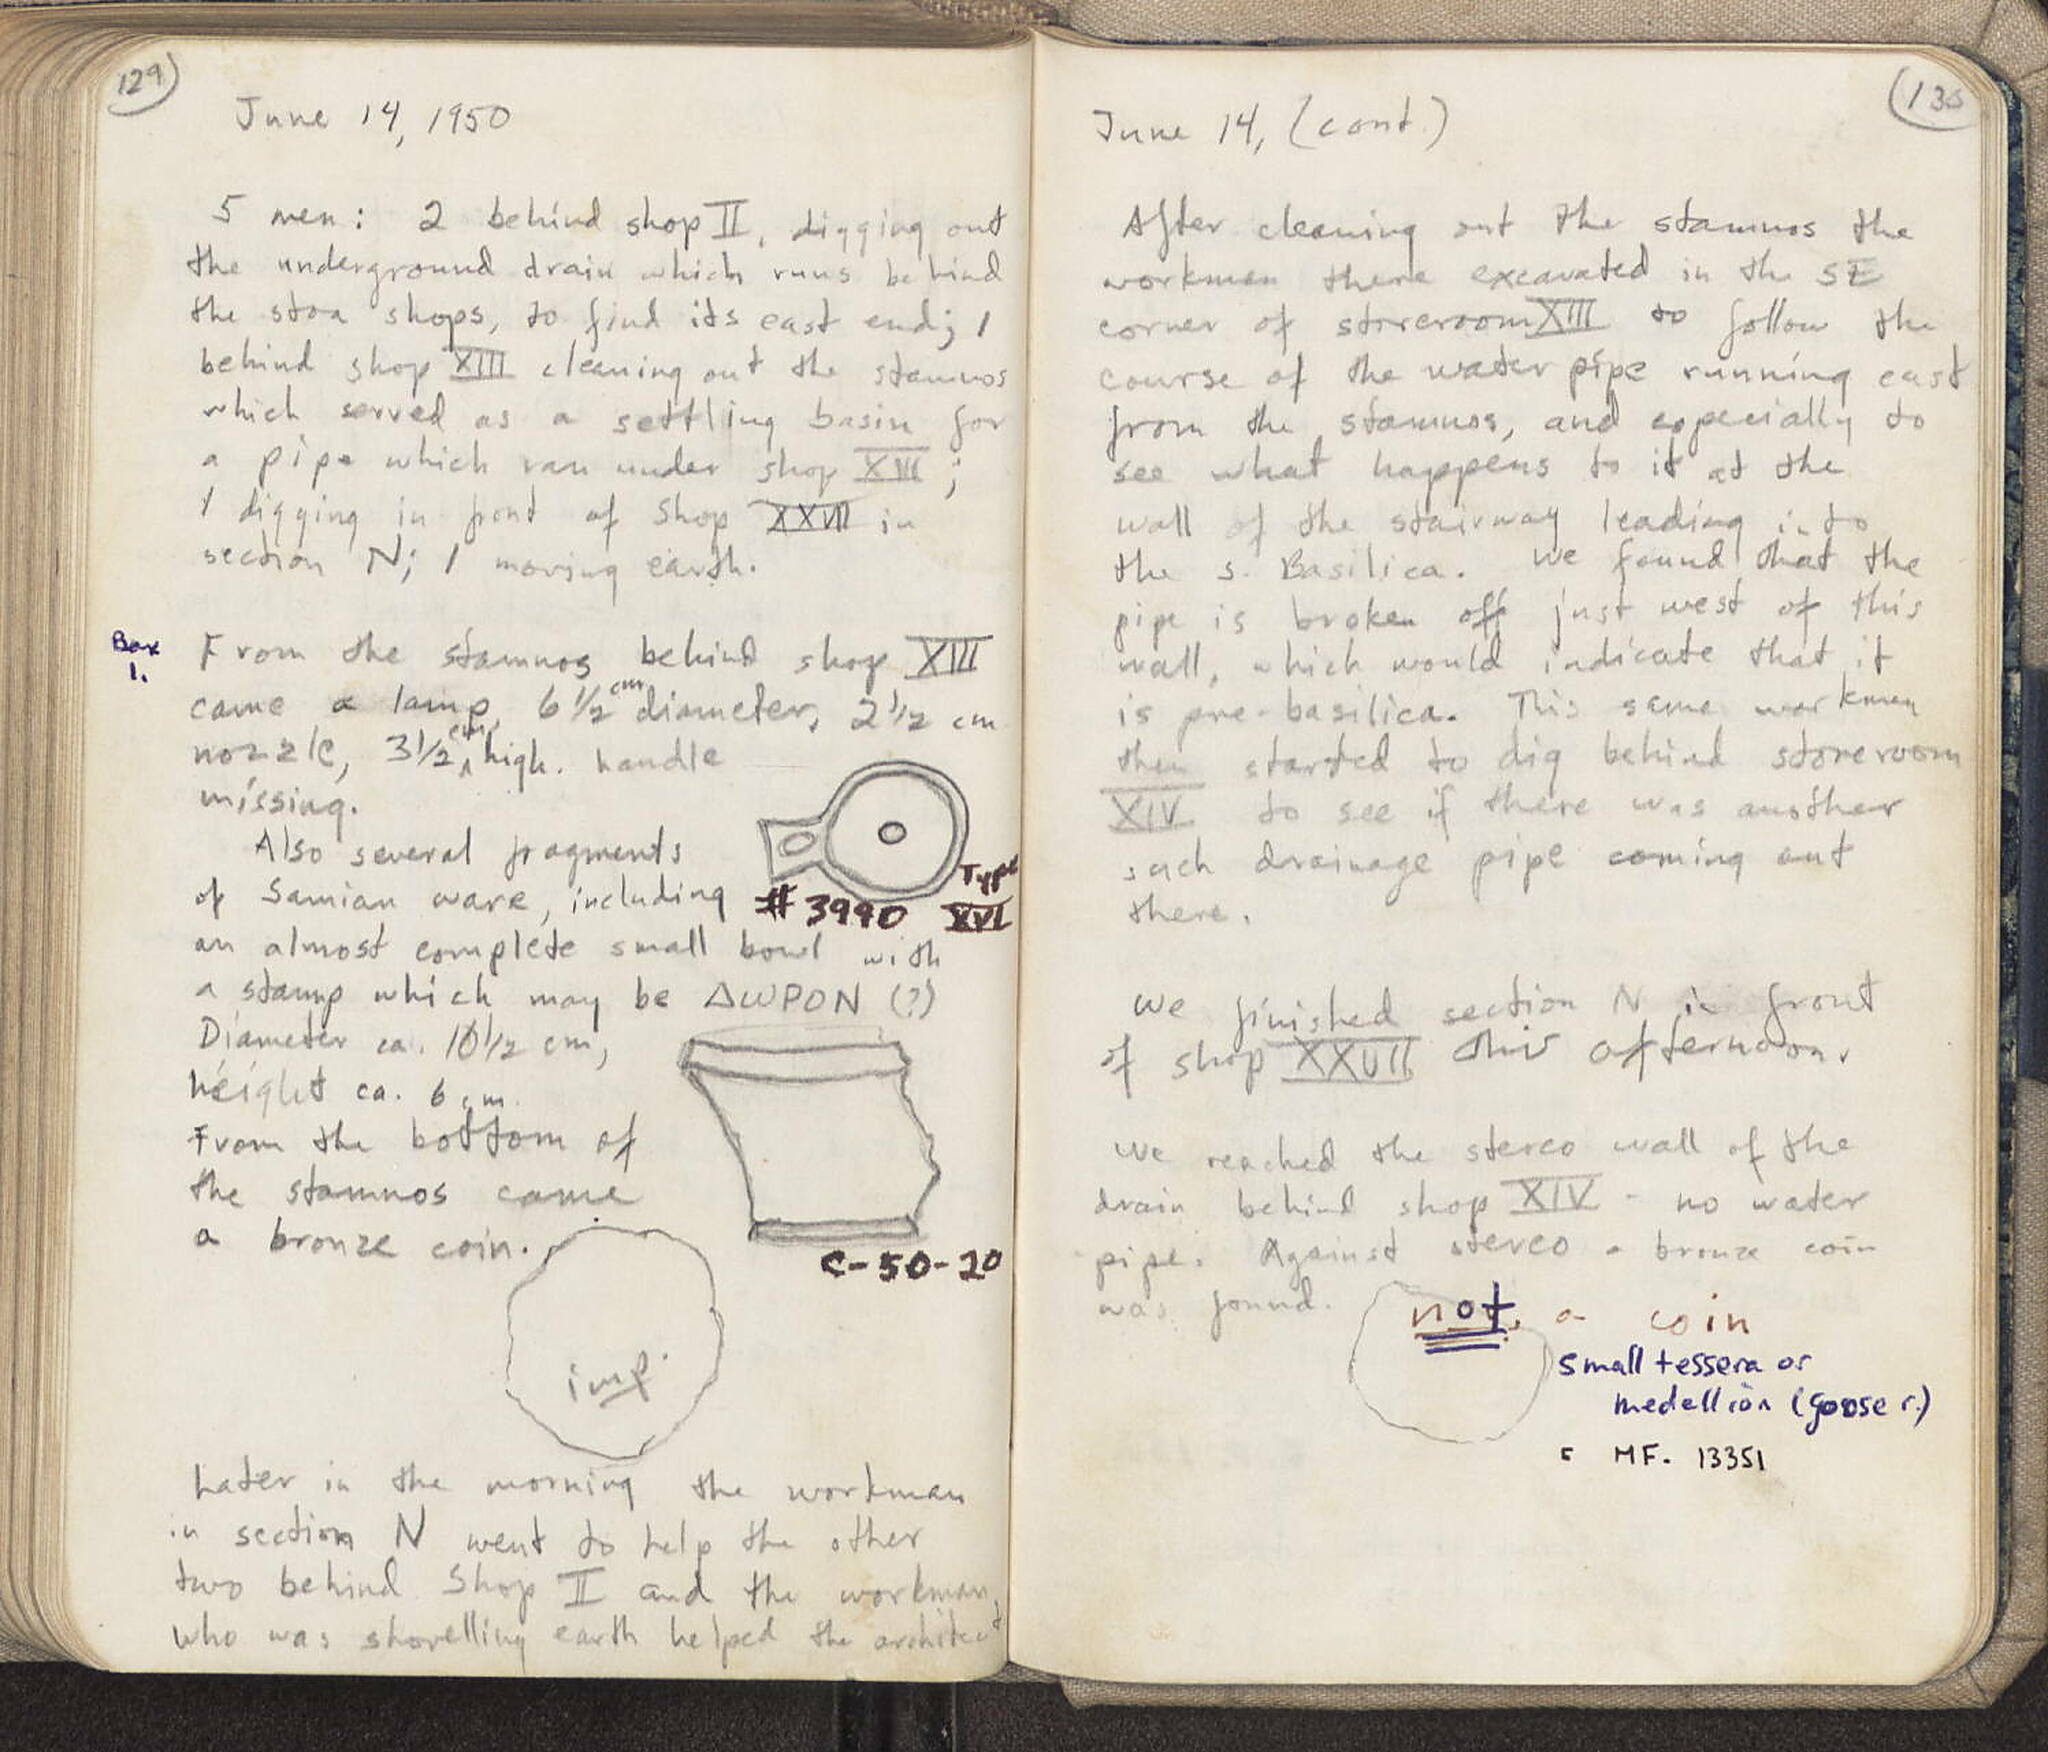 129
June 14, 1950
5 men: 2 behind shop II, digging out
the underground drain which runs behind
the stoa shops, to find its east end; 1
behind shop XIII cleaning out the stamnos
which served as a settling basin for
a pipe which ran under shop XIII;
1 digging in front of Shop XXVII in
section N; 1 moving earth.
Box
1.
From the stamnos behind shop XIII
came a lamp, 6 1/2 cm diameter, 2 1/2 cm
nozzle, 3 1/2 cm high. handle
missing.
Also several fragments
of Samian ware, including
# 3990 Type
XVI
an almost complete small bowl with
a stamp which may be ΔWPON (?)
Diameter ca. 10 1/2 cm,
height ca. 6 cm.
From the bottom of
the stamnos came
a bronze coin.
C-50-20
imp.
Later in the morning the workman
in section N went to help the other
two behind Shop II and the workman
who was shovelling earth helped the architect
130
June 14, (cont.)
After cleaning out the stamnos the
workman there excavated in the SE
corner of storeroom XIII to follow the
course of the water pipe running east
from the stamnos, and especially to
see what happens to it at the
wall of the stairway leading into
the S. Basilica. We found that the
pipe is broken off just west of this
wall, which would indicate that it
is pre-basilica. This same workman
then started to dig behind storeroom
XIV to see if there was another
such drainage pipe coming out
there.
We finished section N in front
of shop XXVII this afternoon.
We reached the stereo wall of the
drain behind shop XIV - no water
pipe. Against stereo a bronze coin
was found.
not a coin
small tessera or
medellion (goose r.)
= MF. 13351